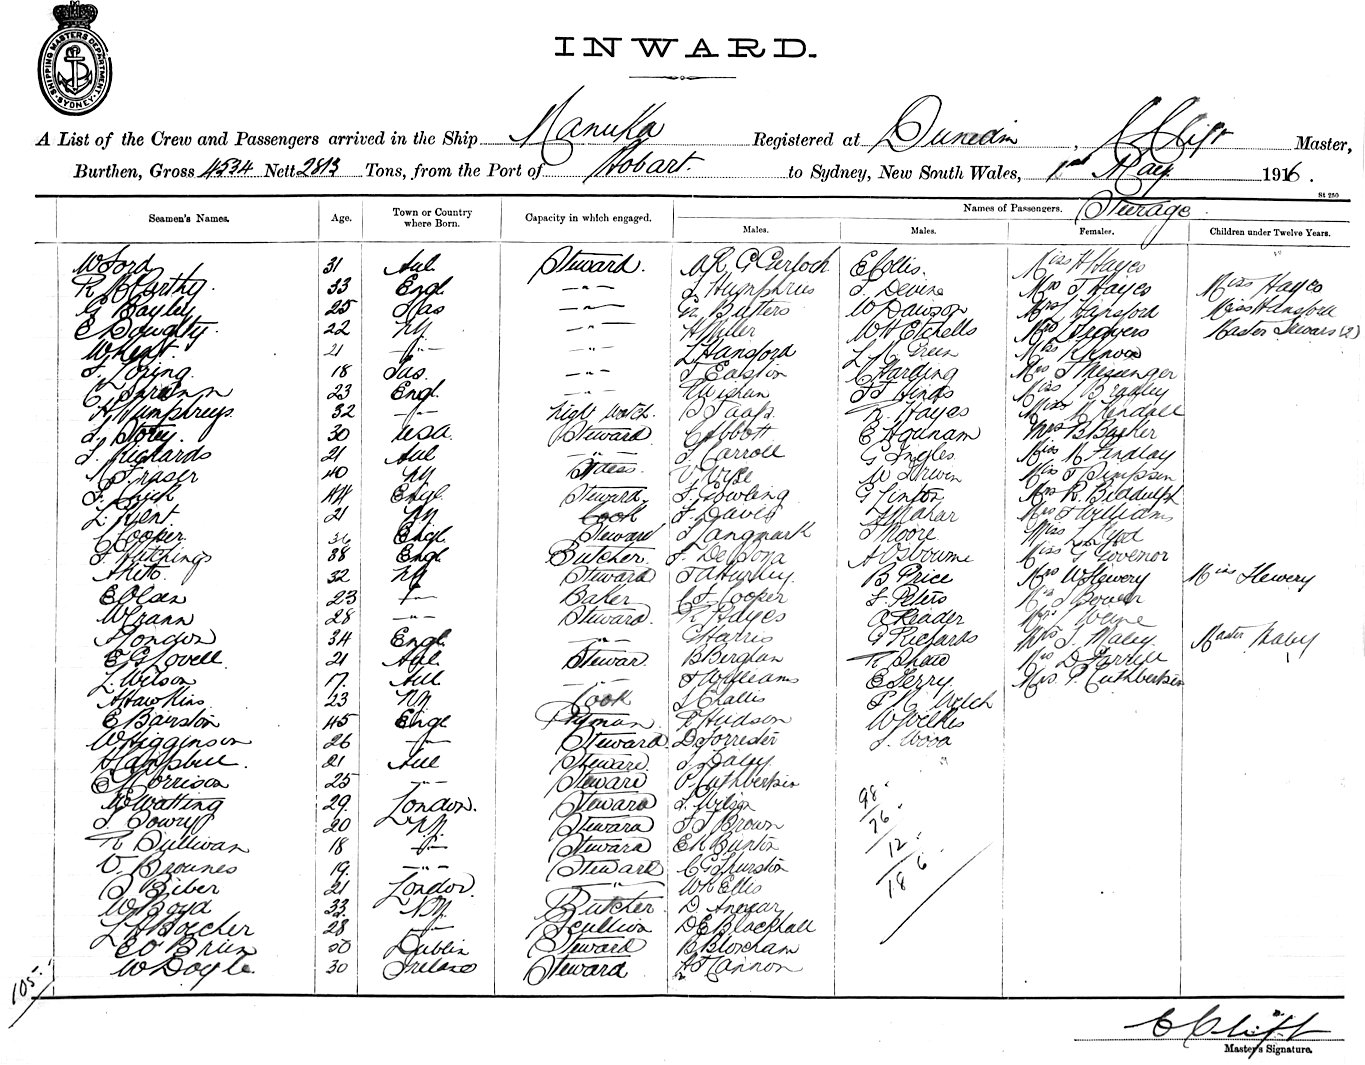 SHIPPING MASTERS DEPARTMENT SYDNEY
INWARD.
A List of the Crew and Passengers arrived in the Ship Manuka Registered at Dunedin, C Clift Master,
Burthen, Gross 4534 Nett 2813 Tons, from the Port of Hobart. to Sydney, New South Wales, 1st May 1916.
St 250
Seamen's Names. Age. Town or Country where Born. Capacity in which engaged. Names of Passengers. Steerage
Males. Males. Females. Children under Twelve Years.
W Ford 31 Aul Steward. E Collis. Miss H Hayes
R McCarthy. 33 Engl —"— J Humphries J Devine Mrs J Hayes Miss Hayes
G Bayley 25 Tas —"— G Butters W Dawson Mrs L Hansford Miss Hansford
E Doughty. 22 NZ —"— A Miller W H Etchells Mrs Master (2)
W Kent. 21 —"— —"— L Hansford L H Green Miss K Knox
J Loring. 18 Tas. —"— J Ealston C Harding Mrs J Messenger
23 Engl —"— J J Hinds Miss Bradley
A Humphreys. 32 —"— Night Watch. R. Hayes Miss M Kendall
J Storey. 30 USA. Steward C Abbott E Hounam Mrs B Barker
J. Richards 21 Aul —"— J Carroll G Ingles Miss M Findlay
Fraser 40 NZ V Wise W Irwin Mrs J Simpson
J. Chick 44 Engl Steward J. Gowling G Linton Mrs R. Biddulph
L. Kent 21 NZ Cook J Davis A Mahar Mrs J Williams
C Cooper 36 Engl Steward J Langmark J Moore Miss
J Hitchings 38 Engl Butcher J De Bona A Osbourne Miss G Govenor
A Kito. 32 NZ Steward J A Hurley B Price Mrs W Flewery Miss Flewery
E Olsen 23 —"— Baker C J. Cooper J Peters Bower
W Crann 28 —"— Steward. R Hayes A Reader Wayne
J London 34 Engl —"— C Harris G Richards Mrs J. Maley. Master Maley
E G Lovell 21 Aul Steward. B Berglan R Shaw Mrs D Farrell 1
L. Wilson 17. Aul —"— J Williams E Terry Mrs P. Cuthbertson
A Hawkins 23 NZ Cook J Challis P R Welch
E Bairstow 45 Engl Pantryman P Hudson W Wilkes
W Higginson 26 —"— Steward D Forrester J. Wood
H Campbell. 21 Aul Steward. J Daley "
E Morrison 25 —"— Steward P Cuthbertson
W Watling 29. London. Steward J. Wilson 98
J. Dowry 20 NZ Steward J J Brown 76
R Sullivan 18 —"— Steward E R Burton 12
V. Brownes 19. —"— Steward C G Thurston 186
J Biber 21 London —"— W R Ellis
W Boyd 33 NZ Butcher D Annear
L A Boucher 28 —"— Scullion D E Blackhall
E O Brien 50 Dublin Steward B Bloxham
W Doyle 30 Ireland Steward A J Cannon
105
C Clift
Master's Signature.